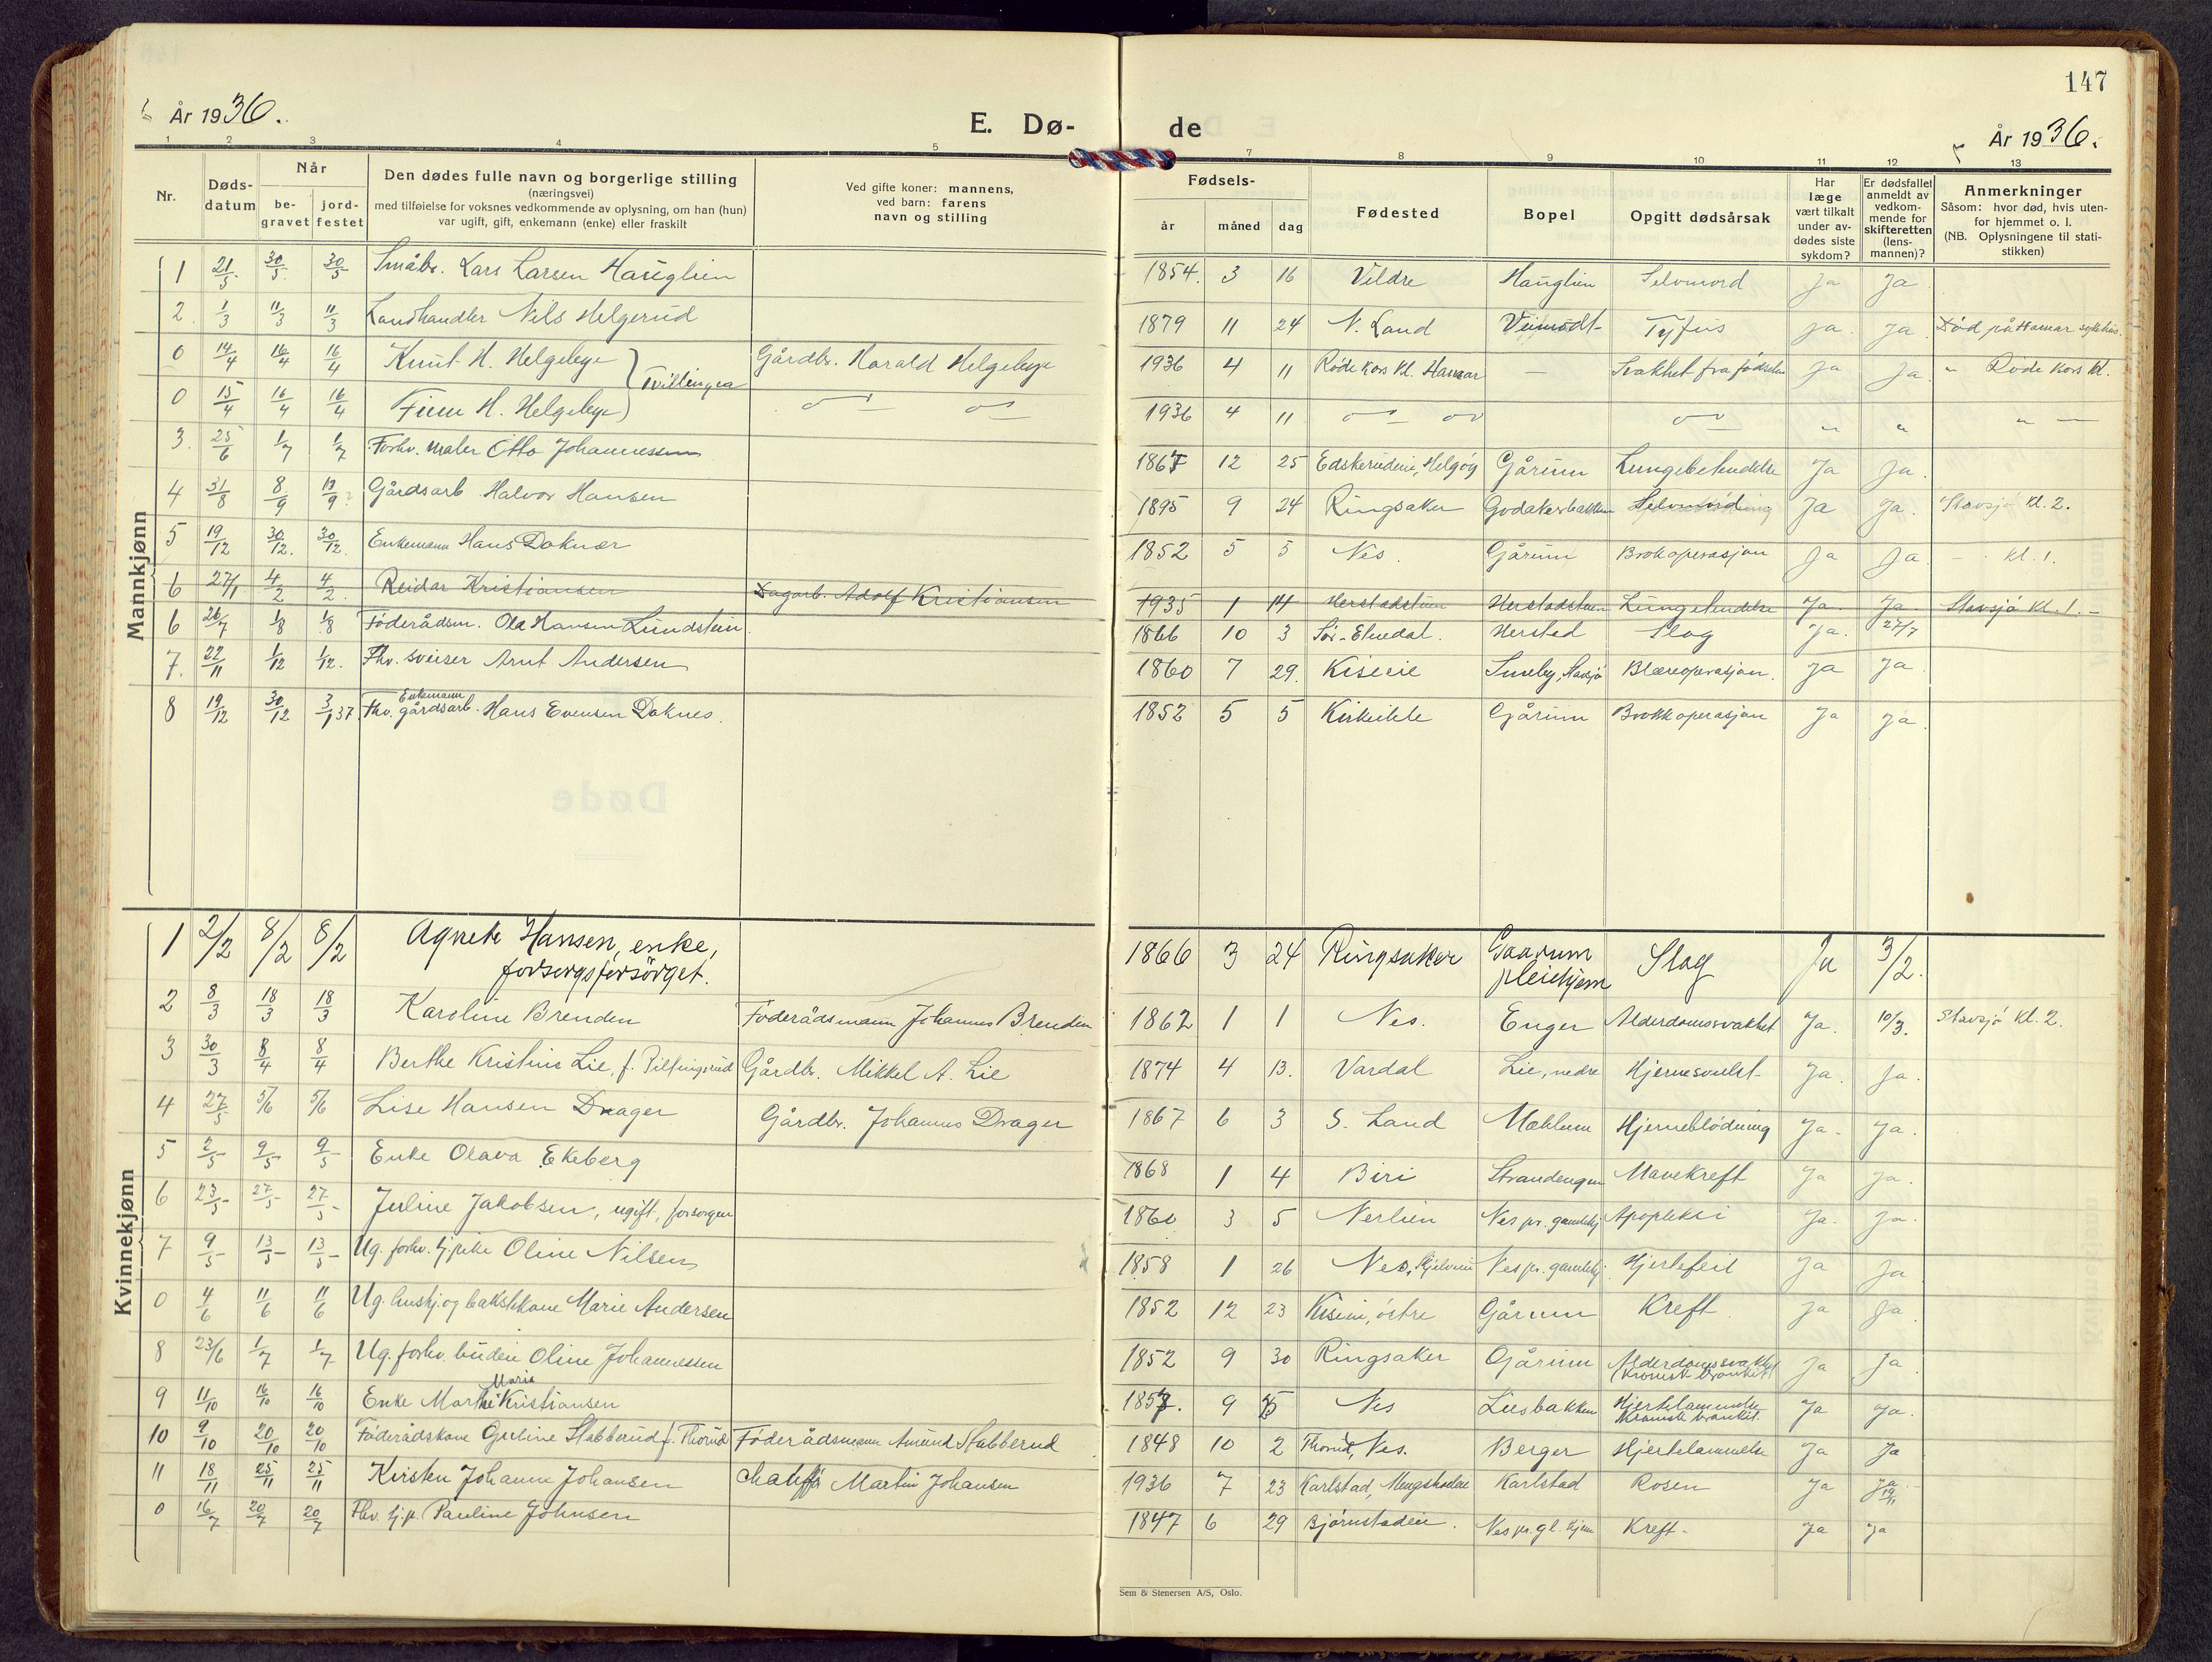 147
År 1936.
E. Dø-
de
År 1936.
1 2 3 4 5 7 8 9 10 11 12 13
Nr.
Døds-datum
Når
be-gravet
jord-festet
Den dødes fulle navn og borgerlige stilling
(næringsvei)
med tilføielse for voksnes vedkommende av oplysning, om han (hun)
var ugift, gift, enkemann (enke) eller fraskilt
Ved gifte koner: mannens,
ved barn: farens
navn og stilling
Fødsels-
år
måned
dag
Fødested
Bopel
Opgitt dødsårsak
Har læge vært tilkalt under av-dødes siste sykdom?
Er dødsfallet anmeldt av vedkom-mende for skifteretten (lens-mannen)?
Anmerkninger
Såsom: hvor død, hvis uten-
for hjemmet o. l.
(NB. Oplysningene til stati-
stikken)
Mannkjønn
1 21/5 30/5 30/5 Småbr. Lars Larsen Hauglien 1854. 3 16 Veldre Hauglien Selvmord Ja Ja
2 1/3 11/3 11/3 Landhandler Nils Helgerud 1879 11 24 N. Land Veimodt Tyfus Ja. Ja Død på Hamar sykehus.
0 14/4 16/4 16/4 Knut H. Helgebye } Tvillinger Gårdbr. Harald Helgebye 1936 4 11 Røde Kors Kl. Hamar — Svakhet fra fødselen Ja Ja. " Røde Kors Kl.
0 15/4 16/4 16/4 Finn H. Helgebye) 1936 4 11 " " " —
3. 25/6 1/7 1/7 Forhv. maler Otto Johannessen 1867 12 25 Edskerudeie, Helgøy Gårum Lungebetendelse Ja Ja.
4 31/8 8/9 13/9 Gårdsarb Halvor Hansen 1895 9 24 Ringsaker Godakerbakken Ja Ja. Stavsjø Kl. 2.
5 19/12 30/12. 30/12. Enkemann Hans Doknær 1852 5 5 Nes. Gårum Brokoperasjon Ja Ja. Kl. 1.
6 27/1 4/2 4/2. Reidar Kristiansen Dagarb. Adolf Kristiansen 1935 1 14 Herstadstuen Herstadstuen Lungebetendelse Ja Ja Stavsjø Kl. 1. –
6 26/7 1/8 1/8 Føderådsm. Ola Hansen Lundstein 1866 10 3 Sør-Etnedal. Hersted Slag Ja. 27/7
7. 22/11 1/12 1/12. Fhv. sveiser Arnt Andersen 1860 7 29. Kiseeie Smeby, Stavsjø Blæreoperasjon. Ja Ja
8 19/12 30/12 3/1 37 Fhv. Enkemann gårdsarb. Hans Evensen Doknes. 1852 5 5 Kirkekle Gårum Brokkoperasjon Ja Ja.
Kvinnekjønn
1 2/2 8/2 8/2 Agnete Hansen, enke,
forsorgsforsörget. 1866 3 24 Ringsaker Gaarum pleiehjem Slag Ja 3/2.
2 8/3 18/3 18/3 Karoline Brenden Føderådsmann Johannes Brenden 1862 1 1 Nes. Enger Alderdomssvakhet Ja. 10/3. Stavsjø Kl. 2.
3 30/3 8/4 8/4 Berthe Kristine Lie, f. Pilfingsrud Gårdbr. Mikkel A. Lie 1874 4 13. Vardal Lie, nedre Hjernesvulst Ja. Ja.
4 27/5 5/6 5/6 Lise Hansen Drager Gårdbr. Johannes Drager 1867 6 3 S. Land Mæhlum Hjerneblödning Ja. Ja.
5 2/5 9/5 9/5 Enke Olava Ekeberg 1868 1 4 Biri Strandengen Mavekreft Ja Ja.
6 23/5 27/5 27/5 Juline Jakobsen, ugift, forsorgen 1860 3 5 Nerlien Nes pr. gamlehj Apopleksi Ja. Ja.
7 9/5 13/5 13/5 Ug. forhv. tj.pike Oline Nilsen 1858 1 26 Nes, Nes pr. gamlehj Hjertefeil Ja Ja
0 4/6 11/6 11/6 Ug. hushj. og bakstekone Marie Andersen 1852 12 23 Kiseeie, østre Gårum Kreft Ja Ja.
8 23/6 1/7 1/7 Ug. forhv. budeie Oline Johannessen 1852 9 30 Ringsaker Gårum Alderdomssvakhet
(Kronisk bronkit) Ja Ja
9 11/10 16/10 16/10 Enke Marthe Maria Kristiansen 1857. 9 5 Nes Liesbakken Hjertelammelse
Kronisk bronkit. Ja Ja.
10 9/10 20/10 20/10 Føderådskone Guline Stabberud f. Thorud Føderådsmann Amund Stabberud 1848 10 2 Thorud, Nes. Berger Hjertelammelse Ja Ja
11 18/11 25/11 25/11 Kirsten Johanne Johansen Chauffør Martin Johansen 1936 7 23 Karlstad, Mengshoelseie Karlstad Rosen Ja Ja 19/11
0 16/7 20/7 20/7 Fhv. tj.p. Pauline Johnsen 1847 6 29 Bjørnstadeie. Nes pr. gl. hjem Kreft. Ja Ja
Sem & Stenersen A/S, Oslo.